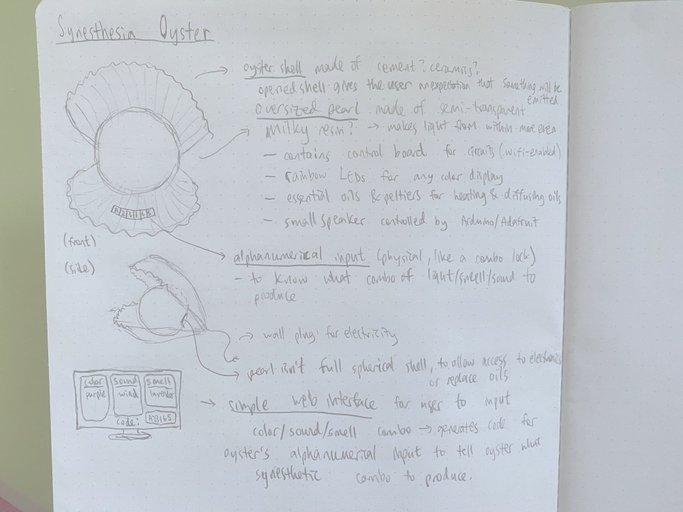 Synesthesia Oyster
oyster shell made of cement? ceramics?,
opened shell gives the user an expectation that something will be emitted
oversized pearl made of semi-transparent
milky resin? → makes light from within more even
- contains control board for circuits (wifi-enabled)
- rainbow LEDs for any color display
- essential oils & peltiers for heating & diffusing oils
- small speaker controlled by Arduino/Adafruit
(front)
alphanumerical input (physical, like a combo lock)
- to know what combo of light/smell/sound to
produce
(side)
wall plug for electricity
pearl isn't full spherical shell, to allow access to electronics
or replace oils
color sound smell
purple wind lavender
code:
simple web interface for user to input
color/sound/smell combo → generates code for
oyster's alphanumerical input to tell oyster what
synesthetic combo to produce.